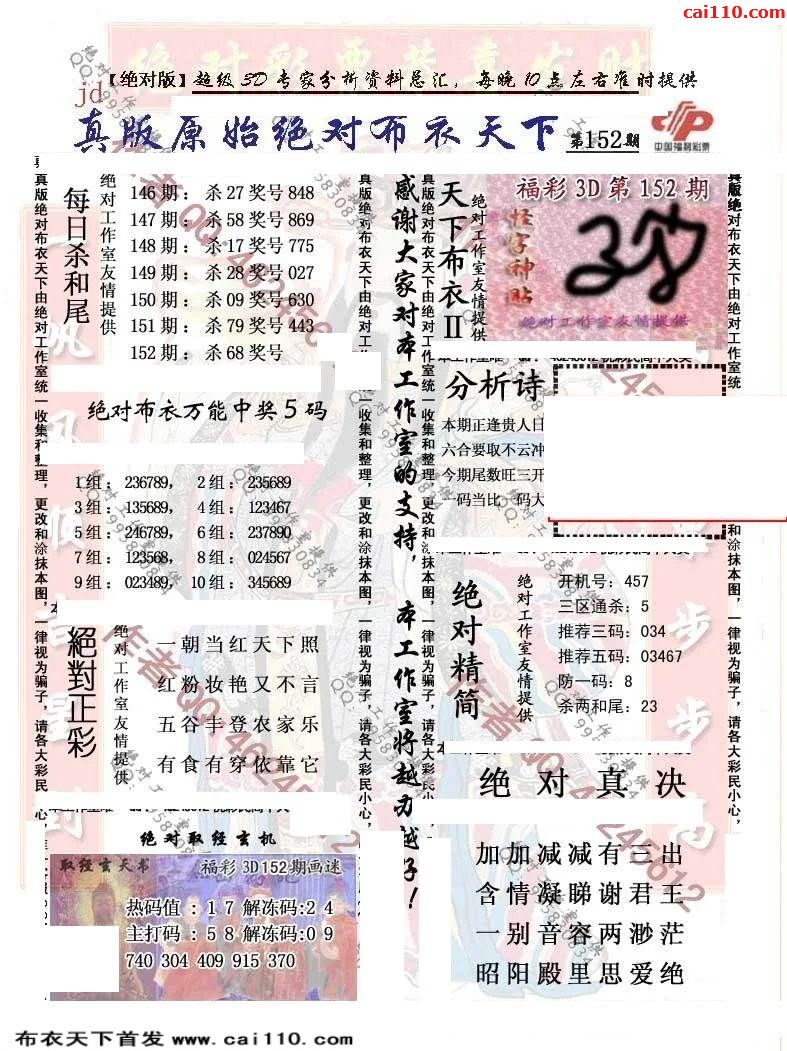 cai110.com
【绝对版】超级3D专家分析资料总汇，每晚10点左右准时提供
jd
真版原始绝对布衣天下
第152期
中国福利彩票
每日杀和尾
绝对工作室友情提供
146期：杀27奖号848
147期：杀58奖号869
148期：杀17奖号775
149期：杀28奖号027
150期：杀09奖号630
151期：杀79奖号443
152期：杀68奖号
绝对布衣万能中奖5码
1组：236789， 2组：235689
3组：135689， 4组：123467
5组：246789， 6组：237890
7组：123568， 8组：024567
9组：023489， 10组：345689
絕對正彩
绝对工作室友情提供
一朝当红天下照
红粉妆艳又不言
五谷丰登农家乐
有食有穿依靠它
绝对取经玄机
取经玄天书
福彩3D152期画迷
热码值：17解冻码：24
主打码：58解冻码：09
740 304 409 915 370
真版绝对布衣天下由绝对工作室统一收集和整理，更改和涂抹本图，一律视为骗子，请各大彩民小心，
真版绝对布衣天下由绝对工作室统一收集和整理，更改和涂抹本图，一律视为骗子，请各大彩民小心，
感谢大家对本工作室的支持，本工作室将越办越好！
真版绝对布衣天下由绝对工作室统一收集和整理，更改和涂抹本图，一律视为骗子，请各大彩民小心，
天下布衣II
绝对工作室友情提供
福彩3D第152期
怪字神贴
绝对工作室友情提供
分析诗
本期正逢贵人日
六合要取不云冲
今期尾数旺三开
一码当比一码大
绝对精简
绝对工作室友情提供
开机号：457
三区通杀：5
推荐三码：034
推荐五码：03467
防一码：8
杀两和尾：23
绝对真决
加加减减有三出
含情凝睇谢君王
一别音容两渺茫
昭阳殿里思爱绝
真版绝对布衣天下由绝对工作室统
和涂抹本图，一律视为骗子，请各大彩民小心，
作者QQ:46245612
布衣天下首发 www.cai110.com